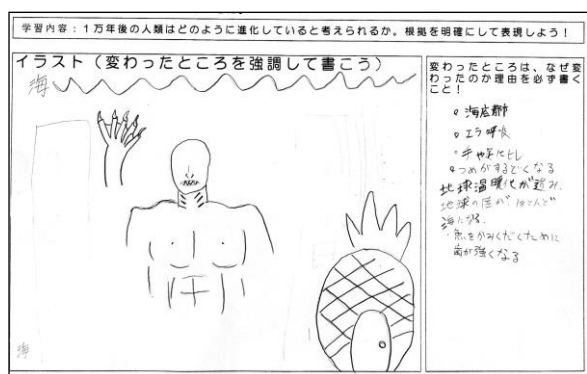 学習内容：１万年後の人類はどのように進化していると考えられるか。根拠を明確にして表現しよう！
イラスト（変わったところを強調して書こう）
海
海
変わったところは、なぜ変
わったのか理由を必ず書く
こと！
海底都市
エラ呼吸
手や足にヒレ
つめがするどくなる
地球温暖化が進み、
地球の
ほとんど
海になる。
・魚をかみくだくために
歯が強くなる